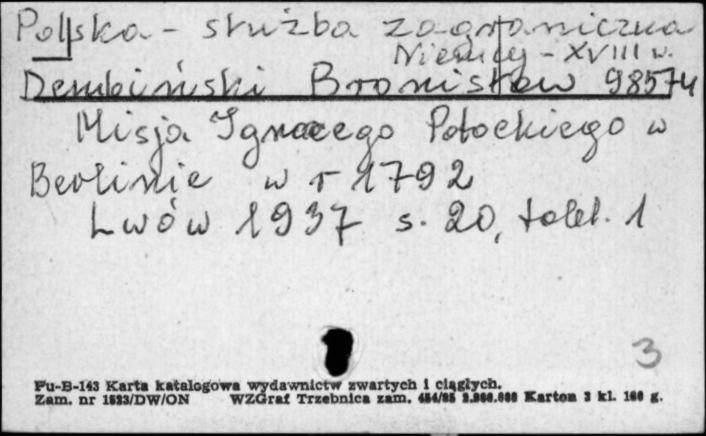 Polska - służba zagraniczna
Niemcy - XVIII w.
Dembiński Bronisław 98574
Misja Ignacego Potockiego w
Berlinie w r 1792
Lwów 1937 s. 20, tabl. 1
3
Pu-B-143 Karta katalogowa wydawnictw zwartych i ciągłych.
Zam. nr 1523/DW/ON WZGraf Trzebnica zam. Karton 3 kl. 160 g.